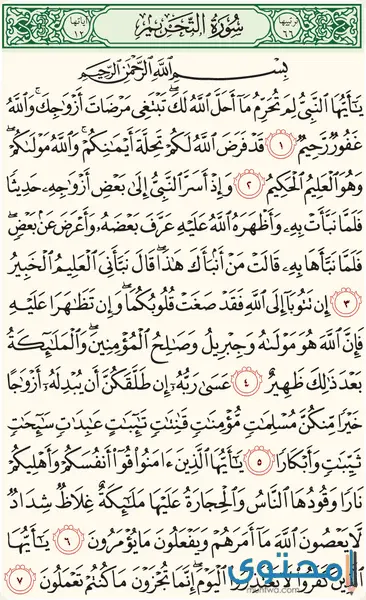 ترتيبها ٦٦ سُورَةُ التَّحْرِيمِ آياتها ١٢
بِسْمِ اللَّهِ الرَّحْمَٰنِ الرَّحِيمِ
يَٰٓأَيُّهَا ٱلنَّبِىُّ لِمَ تُحَرِّمُ مَآ أَحَلَّ ٱللَّهُ لَكَۖ تَبْتَغِى مَرْضَاتَ أَزْوَٰجِكَۚ وَٱللَّهُ
غَفُورٌ رَّحِيمٌ ١ قَدْ فَرَضَ ٱللَّهُ لَكُمْ تَحِلَّةَ أَيْمَٰنِكُمْۚ وَٱللَّهُ مَوْلَىٰكُمْۖ
وَهُوَ ٱلْعَلِيمُ ٱلْحَكِيمُ ٢ وَإِذْ أَسَرَّ ٱلنَّبِىُّ إِلَىٰ بَعْضِ أَزْوَٰجِهِۦ حَدِيثًا
فَلَمَّا نَبَّأَتْ بِهِۦ وَأَظْهَرَهُ ٱللَّهُ عَلَيْهِ عَرَّفَ بَعْضَهُۥ وَأَعْرَضَ عَنۢ بَعْضٍۖ
فَلَمَّا نَبَّأَهَا بِهِۦ قَالَتْ مَنْ أَنۢبَأَكَ هَٰذَاۖ قَالَ نَبَّأَنِىَ ٱلْعَلِيمُ ٱلْخَبِيرُ
٣ إِن تَتُوبَآ إِلَى ٱللَّهِ فَقَدْ صَغَتْ قُلُوبُكُمَاۖ وَإِن تَظَٰهَرَا عَلَيْهِ
فَإِنَّ ٱللَّهَ هُوَ مَوْلَىٰهُ وَجِبْرِيلُ وَصَٰلِحُ ٱلْمُؤْمِنِينَۖ وَٱلْمَلَٰٓئِكَةُ
بَعْدَ ذَٰلِكَ ظَهِيرٌ ٤ عَسَىٰ رَبُّهُۥٓ إِن طَلَّقَكُنَّ أَن يُبْدِلَهُۥٓ أَزْوَٰجًا
خَيْرًا مِّنكُنَّ مُسْلِمَٰتٍ مُّؤْمِنَٰتٍ قَٰنِتَٰتٍ تَٰٓئِبَٰتٍ عَٰبِدَٰتٍ سَٰٓئِحَٰتٍ
ثَيِّبَٰتٍ وَأَبْكَارًا ٥ يَٰٓأَيُّهَا ٱلَّذِينَ ءَامَنُوا۟ قُوٓا۟ أَنفُسَكُمْ وَأَهْلِيكُمْ
نَارًا وَقُودُهَا ٱلنَّاسُ وَٱلْحِجَارَةُ عَلَيْهَا مَلَٰٓئِكَةٌ غِلَاظٌ شِدَادٌ
لَّا يَعْصُونَ ٱللَّهَ مَآ أَمَرَهُمْ وَيَفْعَلُونَ مَا يُؤْمَرُونَ ٦ يَٰٓأَيُّهَا
ٱلَّذِينَ كَفَرُوا۟ لَا تَعْتَذِرُوا۟ ٱلْيَوْمَۖ إِنَّمَا تُجْزَوْنَ مَا كُنتُمْ تَعْمَلُونَ ٧
محتوى
muhtwa.com